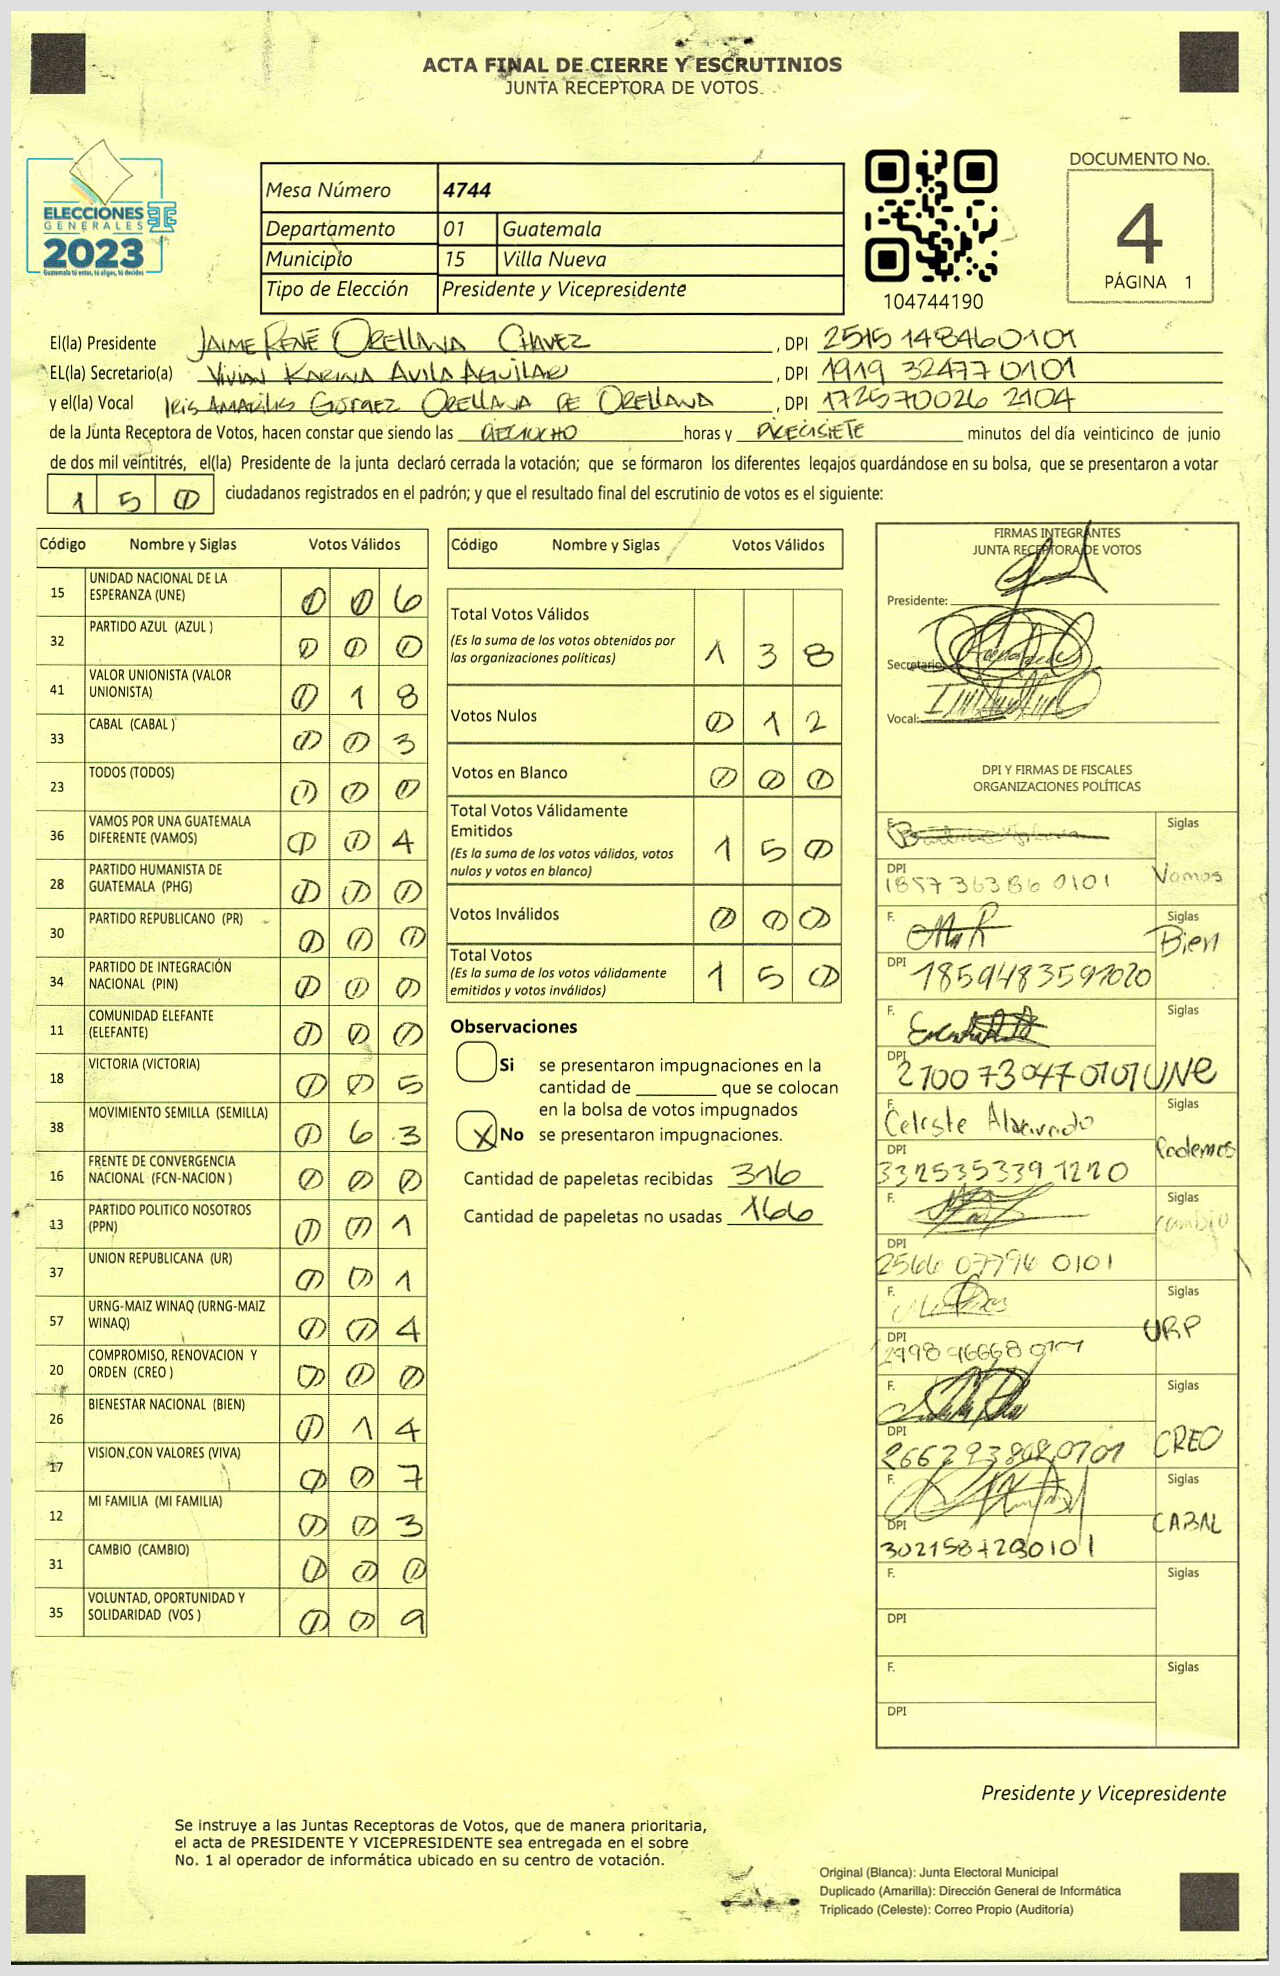 ACTA FINAL DE CIERRE Y ESCRUTINIOS
JUNTA RECEPTORA DE VOTOS
ELECCIONES
GENERALES
2023
Mesa Número 4744
Departamento 01 Guatemala
Municipio 15 Villa Nueva
Tipo de Elección Presidente y Vicepresidente
104744190
DOCUMENTO No.
4
PÁGINA 1
El(la) Presidente JAIME RENÉ ORELLANA CHAVEZ, DPI 2515 14846 0101
EL(la) Secretario(a) VIVIAN KARINA AVILA AGUILAR, DPI 1919 32477 0101
y el(la) Vocal IRIS AMARILIS GÓMEZ ORELLANA DE ORELLANA, DPI 1725 70026 2104
de la Junta Receptora de Votos, hacen constar que siendo las DIECIOCHO horas y DIECISIETE minutos del día veinticinco de junio
de dos mil veintitrés, el(la) Presidente de la junta declaró cerrada la votación; que se formaron los diferentes legajos quardándose en su bolsa, que se presentaron a votar
1 5 0 ciudadanos registrados en el padrón; y que el resultado final del escrutinio de votos es el siguiente:
Código Nombre y Siglas Votos Válidos
15 UNIDAD NACIONAL DE LA ESPERANZA (UNE) 0 0 6
32 PARTIDO AZUL (AZUL ) 0 0 0
41 VALOR UNIONISTA (VALOR UNIONISTA) 0 1 8
33 CABAL (CABAL ) 0 0 3
23 TODOS (TODOS) 0 0 0
36 VAMOS POR UNA GUATEMALA DIFERENTE (VAMOS) 0 0 4
28 PARTIDO HUMANISTA DE GUATEMALA (PHG) 0 0 0
30 PARTIDO REPUBLICANO (PR) 0 0 0
34 PARTIDO DE INTEGRACIÓN NACIONAL (PIN) 0 0 0
11 COMUNIDAD ELEFANTE (ELEFANTE) 0 0 0
18 VICTORIA (VICTORIA) 0 0 5
38 MOVIMIENTO SEMILLA (SEMILLA) 0 6 3
16 FRENTE DE CONVERGENCIA NACIONAL (FCN-NACION ) 0 0 0
13 PARTIDO POLITICO NOSOTROS (PPN) 0 0 1
37 UNION REPUBLICANA (UR) 0 0 1
57 URNG-MAIZ WINAQ (URNG-MAIZ WINAQ) 0 0 4
20 COMPROMISO, RENOVACION Y ORDEN (CREO ) 0 0 0
26 BIENESTAR NACIONAL (BIEN) 0 1 4
17 VISION CON VALORES (VIVA) 0 0 7
12 MI FAMILIA (MI FAMILIA) 0 0 3
31 CAMBIO (CAMBIO) 0 0 0
35 VOLUNTAD, OPORTUNIDAD Y SOLIDARIDAD (VOS ) 0 0 9
Código Nombre y Siglas Votos Válidos
Total Votos Válidos 1 3 8
(Es la suma de los votos obtenidos por
las organizaciones políticas)
Votos Nulos 0 1 2
Votos en Blanco 0 0 0
Total Votos Válidamente
Emitidos 1 5 0
(Es la suma de los votos válidos, votos
nulos y votos en blanco)
Votos Inválidos 0 0 0
Total Votos 1 5 0
(Es la suma de los votos válidamente
emitidos y votos inválidos)
Observaciones
Si se presentaron impugnaciones en la
cantidad de ________ que se colocan
en la bolsa de votos impugnados
X No se presentaron impugnaciones.
Cantidad de papeletas recibidas 316
Cantidad de papeletas no usadas 166
FIRMAS INTEGRANTES
JUNTA RECEPTORA DE VOTOS
Presidente:
Secretario:
Vocal:
DPI Y FIRMAS DE FISCALES
ORGANIZACIONES POLÍTICAS
F. Siglas
DPI 1857 36386 0101 Vamos
F. Siglas
Bien
DPI 1859483591020
F. Siglas
DPI 2100 73047 0101 UNE
F. Celeste Alvarado Siglas
DPI 332535339 1220 Podemos
F. Siglas
cambio
DPI 2566 07796 0101
F. Siglas
DPI URP
F. Siglas
DPI CREO
F. Siglas
DPI CABAL
F. Siglas
DPI
F. Siglas
DPI
Presidente y Vicepresidente
Se instruye a las Juntas Receptoras de Votos, que de manera prioritaria,
el acta de PRESIDENTE Y VICEPRESIDENTE sea entregada en el sobre
No. 1 al operador de informática ubicado en su centro de votación.
Original (Blanca): Junta Electoral Municipal
Duplicado (Amarilla): Dirección General de Informática
Triplicado (Celeste): Correo Propio (Auditoría)